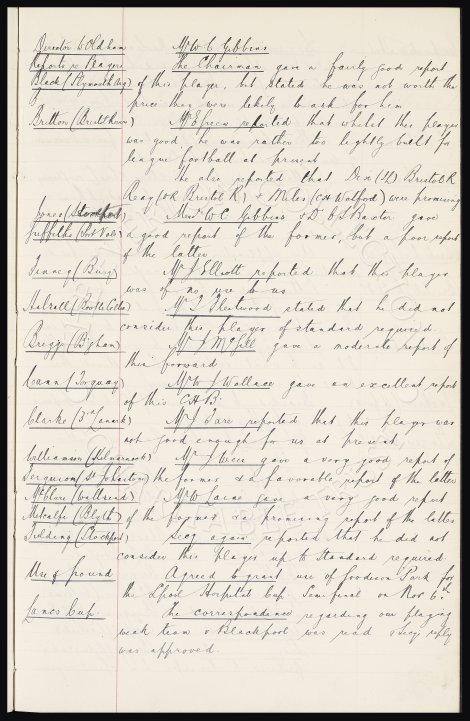 Director to Oldham Mr W C Gibbins
Reports re Players The Chairman gave a fairly good report
Black (Plymouth Arg) of this player, but stated he was not worth the
price they were likely to ask for him
Britton (Bristol Rovers) Mr E Green reported that whilst this player
was good he was rather too lightly built for
league football at present
He also reported that Dix (IL) Bristol R
Reay (OR Bristol R) & Miles (CH Watford) were promising
Jones (Stockport) Mess W C Gibbins & D C S Baxter gave
Griffiths (Port Vale) a good report of the former, but a poor report
of the latter
Finney (Bury) Mr J Elliott reported that this player
was of no use to us
Halsall (Bootle Celtic) Mr T Fleetwood stated that he did not
consider this player of standard required.
Breggy (Bigham) Mr J McGill gave a moderate report of
this forward
Cann (Torquay) Mr W J Wallace gave an excellent report
of this CHB.
Clarke (3rd Lanark) Mr J Fare reported that this player was
not good enough for us at present
Williamson (Kilmarnock) Mr J Weir gave a very good report of
Ferguson (St Johnstone) the former & a favorable report of the latter
McClure (Wallsend) Mr W gave a very good report
Metcalfe (Blyth) of the former & a promising report of the latter
Fielding (Stockport) Secy again reported that he did not
consider this player up to standard required.
Use of Ground Agreed to grant use of Goodison Park for
the Lpool Hospital Cup Semi final on Nov 6th
Lancs Cup. The correspondence regarding our playing
weak team v Blackpool was read & Secy reply
was approved.